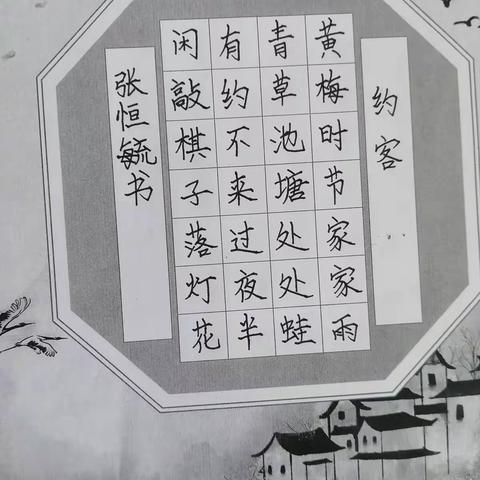 约客
黄梅时节家家雨
青草池塘处处蛙
有约不来过夜半
闲敲棋子落灯花
张恒毓书